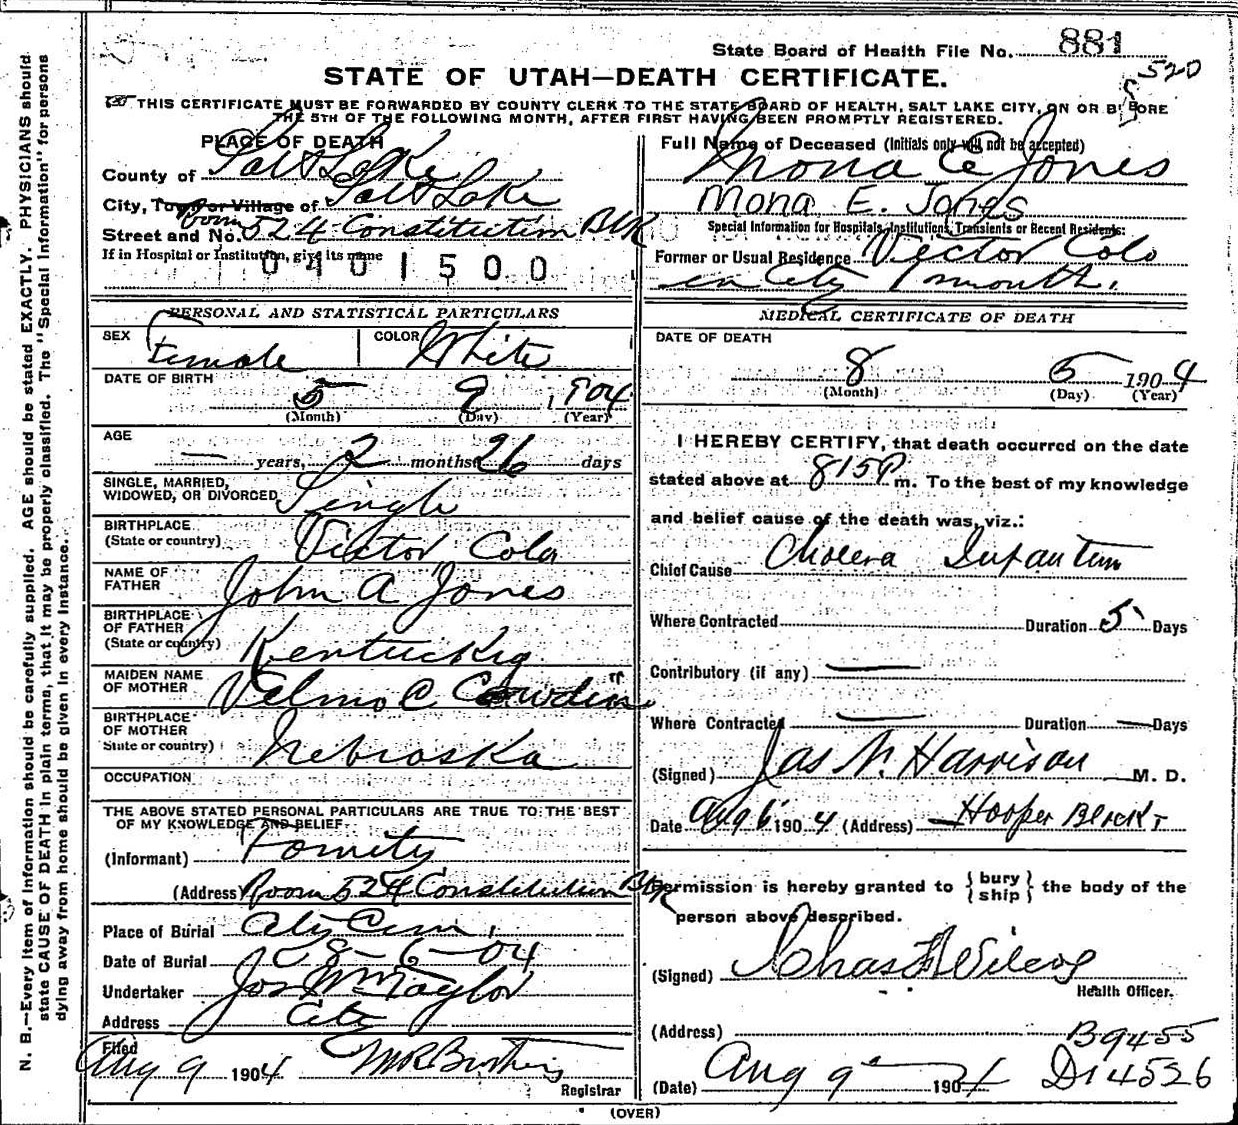 State Board of Health File No. 881
520
STATE OF UTAH—DEATH CERTIFICATE.
THIS CERTIFICATE MUST BE FORWARDED BY COUNTY CLERK TO THE STATE BOARD OF HEALTH, SALT LAKE CITY, ON OR BEFORE
THE 5TH OF THE FOLLOWING MONTH, AFTER FIRST HAVING BEEN PROMPTLY REGISTERED.
PLACE OF DEATH
County of Salt Lake
City, Town or Village of Salt Lake
Street and No. Room 524 Constitution Blk
If in Hospital or Institution, give its name
0401500
Full Name of Deceased (Initials only will not be accepted)
Mona E Jones
Mona E. Jones
Special Information for Hospitals, Institutions, Transients or Recent Residents:
Former or Usual Residence Victor Colo
in City 1 month.
PERSONAL AND STATISTICAL PARTICULARS
SEX Female COLOR White
DATE OF BIRTH
5 9 1904
(Month) (Day) (Year)
AGE
— years, 2 months 26 days
SINGLE, MARRIED,
WIDOWED, OR DIVORCED Single
BIRTHPLACE
(State or country) Victor Colo
NAME OF
FATHER John A Jones
BIRTHPLACE
OF FATHER
(State or country) Kentucky
MAIDEN NAME
OF MOTHER Velma C
BIRTHPLACE
OF MOTHER
State or country) Nebraska
OCCUPATION
THE ABOVE STATED PERSONAL PARTICULARS ARE TRUE TO THE BEST
OF MY KNOWLEDGE AND BELIEF
(Informant)
(Address) Room 524 Constitution Blk
Place of Burial City Cem.
Date of Burial 8-6-04
Undertaker Jos Wm Taylor
Address City
Filed
Aug 9 1904
Registrar
MEDICAL CERTIFICATE OF DEATH
DATE OF DEATH
8 5 1904
(Month) (Day) (Year)
I HEREBY CERTIFY, that death occurred on the date
stated above at 815P m. To the best of my knowledge
and belief cause of the death was, viz.:
Chief Cause Cholera Infantum
Where Contracted Duration 5 Days
Contributory (if any) —
Where Contracted — Duration — Days
(Signed) Jas N. Harrison M. D.
Date Aug 6 1904 (Address) Hooper Block
Permission is hereby granted to { bury
ship } the body of the
person above described.
(Signed) Chas F Wilcox
Health Officer.
(Address) B9455
(Date) Aug 9 1904 D14526
(OVER)
N. B.—Every item of information should be carefully supplied. AGE should be stated EXACTLY. PHYSICIANS should
state CAUSE OF DEATH in plain terms, that it may be properly classified. The "Special Information" for persons
dying away from home should be given in every instance.